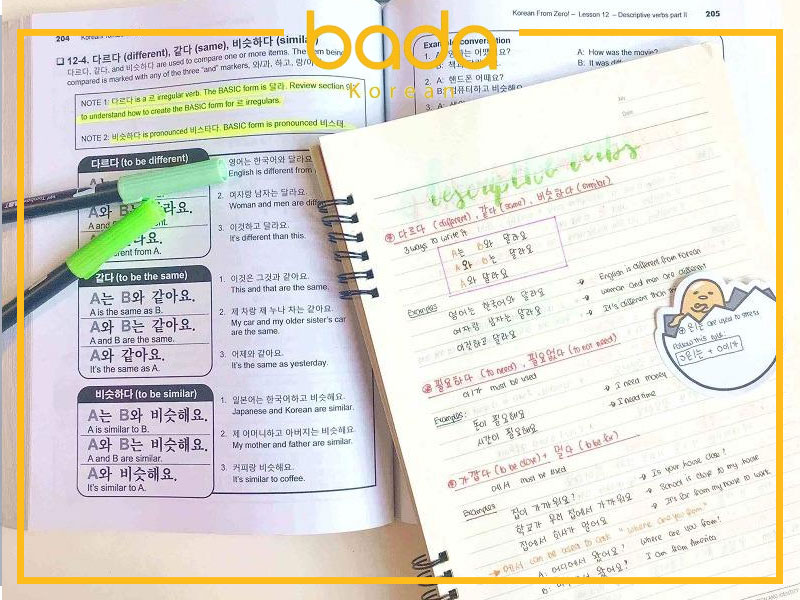 bada
Korean
204
12-4. 다르다 (different), 같다 (same), 비슷하다 (similar)
다르다, 같다, and 비슷하다 are used to compare one or more items. The item being
compared is marked with any of the three "and" markers, 와/과, 하고, 랑/이
NOTE 1: 다르다 is a 르 irregular verb. The BASIC form is 달라. Review section 9
to understand how to create the BASIC form for 르 irregulars.
NOTE 2: 비슷하다 is pronounced 비스타다. BASIC form is pronounced 비스태
다르다 (to be different)
A와 B는 달라요.
A and
달라요.
different from A.
영어는 한국어와 달라요
English is different from
2. 여자랑 남자는 달라요.
Woman and men are
3. 이것하고 달라요.
It's different than this.
같다 (to be the same)
A는 B와 같아요.
A is the same as B.
A와 B는 같아요.
A and B are the same.
A와 같아요.
It's the same as A.
1. 이것은 그것과 같아요.
This and that are the same.
2. 제 차랑 제 누나 차는 같아요.
My car and my older sister's car
are the same.
3. 어제와 같아요.
It's the same as yesterday.
비슷하다 (to be similar)
A는 B와 비슷해요.
A is similar to B.
A와 B는 비슷해요.
A and B are similar.
A와 비슷해요.
It's similar to A.
1. 일본어는 한국어하고 비슷해요.
Japanese and Korean are similar.
2. 제 어머니하고 아버지는 비슷해요.
My mother and father are similar.
3. 커피랑 비슷해요.
It's similar to coffee.
Korean From Zero! – Lesson 12 – Descriptive verbs part II 205
Example conversation
A: How was the movie?
B: It was
A: 핸드폰 어때요?
descriptive verbs
다르다 (different), 같다 (same), 비슷하다 (similar)
3 ways to write it
A는 B와 달라요
A와 B는 달라요
A와 달라요
Examples
영어는 한국어와 달라요 → English is different from Korean
여자랑 남자는 달라요 → Woman and men are different
이것하고 달라요 → It's different than
은/는 are used to stress
Follow this rule:
필요하다 (to need), 필요없다 (to not need)
이/가 must be used
Examples:
돈이 필요해요 → I need money
시간이 필요해요 → I need time
가깝다 (to be close) + 멀다 (to be far)
에서 must be used
Examples
집이 가까워요? → Is your house close?
학교가 우리 집에서 가까워요 → School is close to my house
집에서 회사가 멀어요 → It's far from my house to work
에서 can be used to ask "where are you from"
A: 어디에서 왔어요? Where are you from?
I am from America